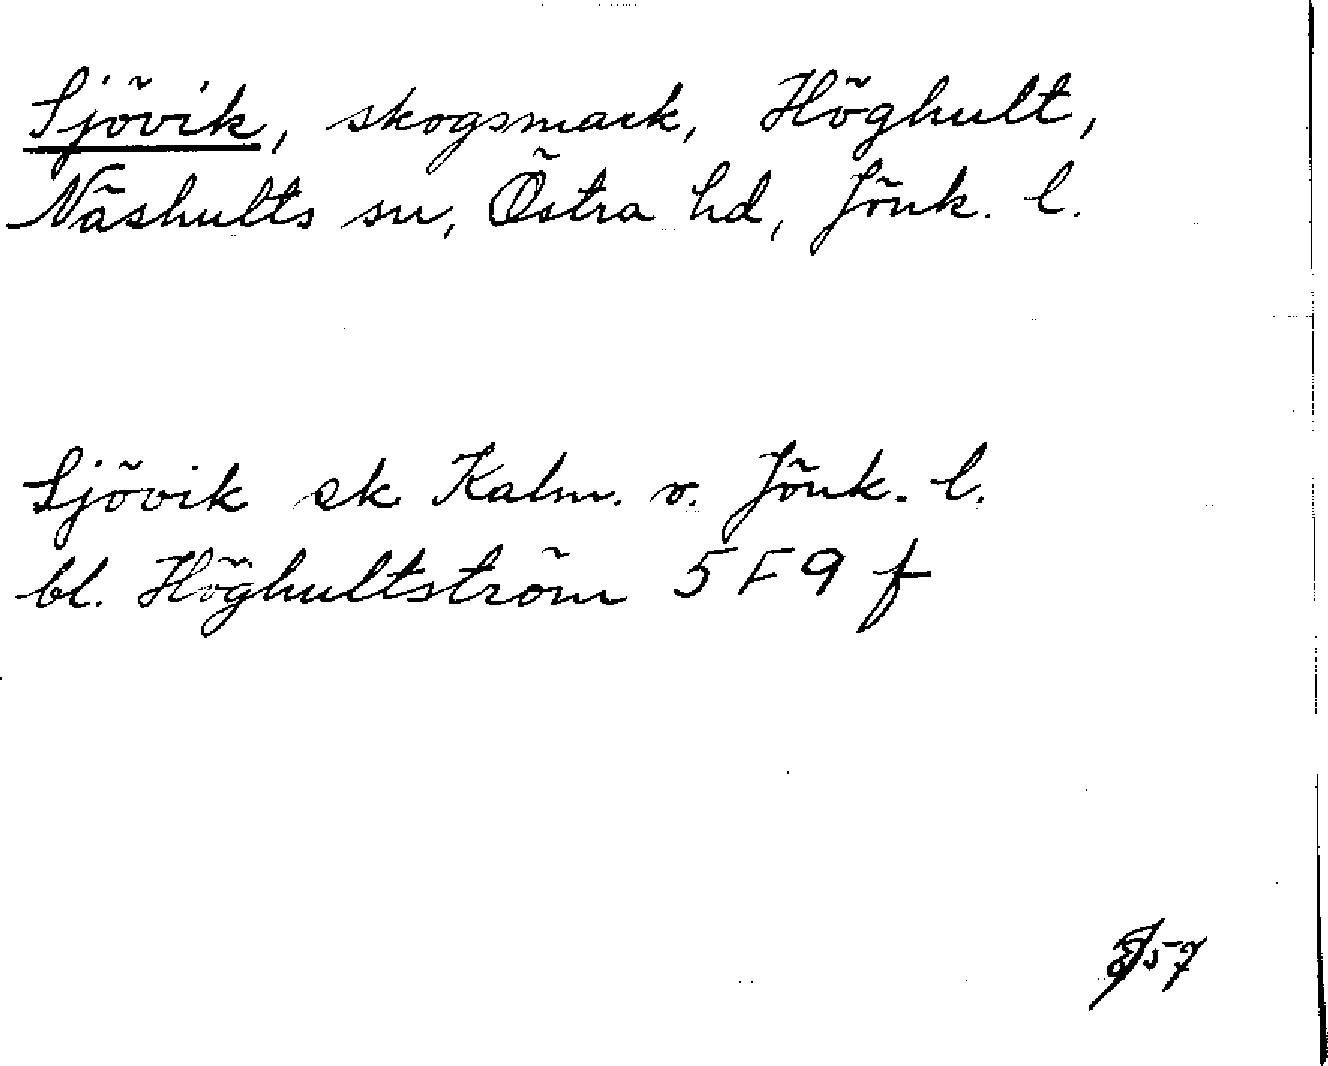 Sjövik, skogsmark, Höghult,
Näshults sn, Östra hd, Jönk. l.
Sjövik ek Kalm. o. Jönk. l.
bl. Höghultström 5 F 9 f
57